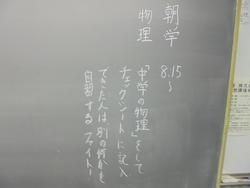 朝学 8.15〜
物理
「中学の物理」をして
チェックシートに記入
できた人は、別の何かを
自習する ファイト!